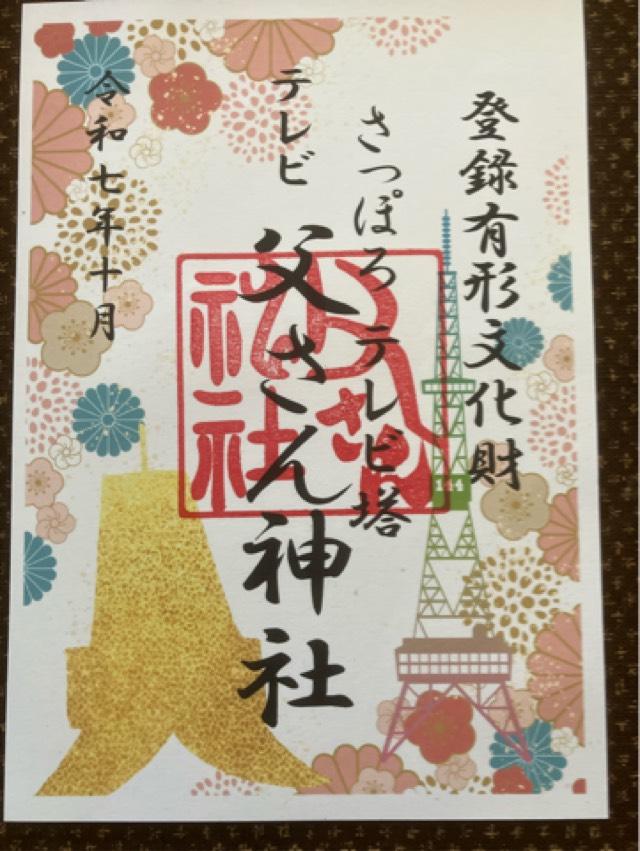 登録有形文化財
さっぽろテレビ塔
テレビ
父さん神社
令和七年十月
父さん
神社